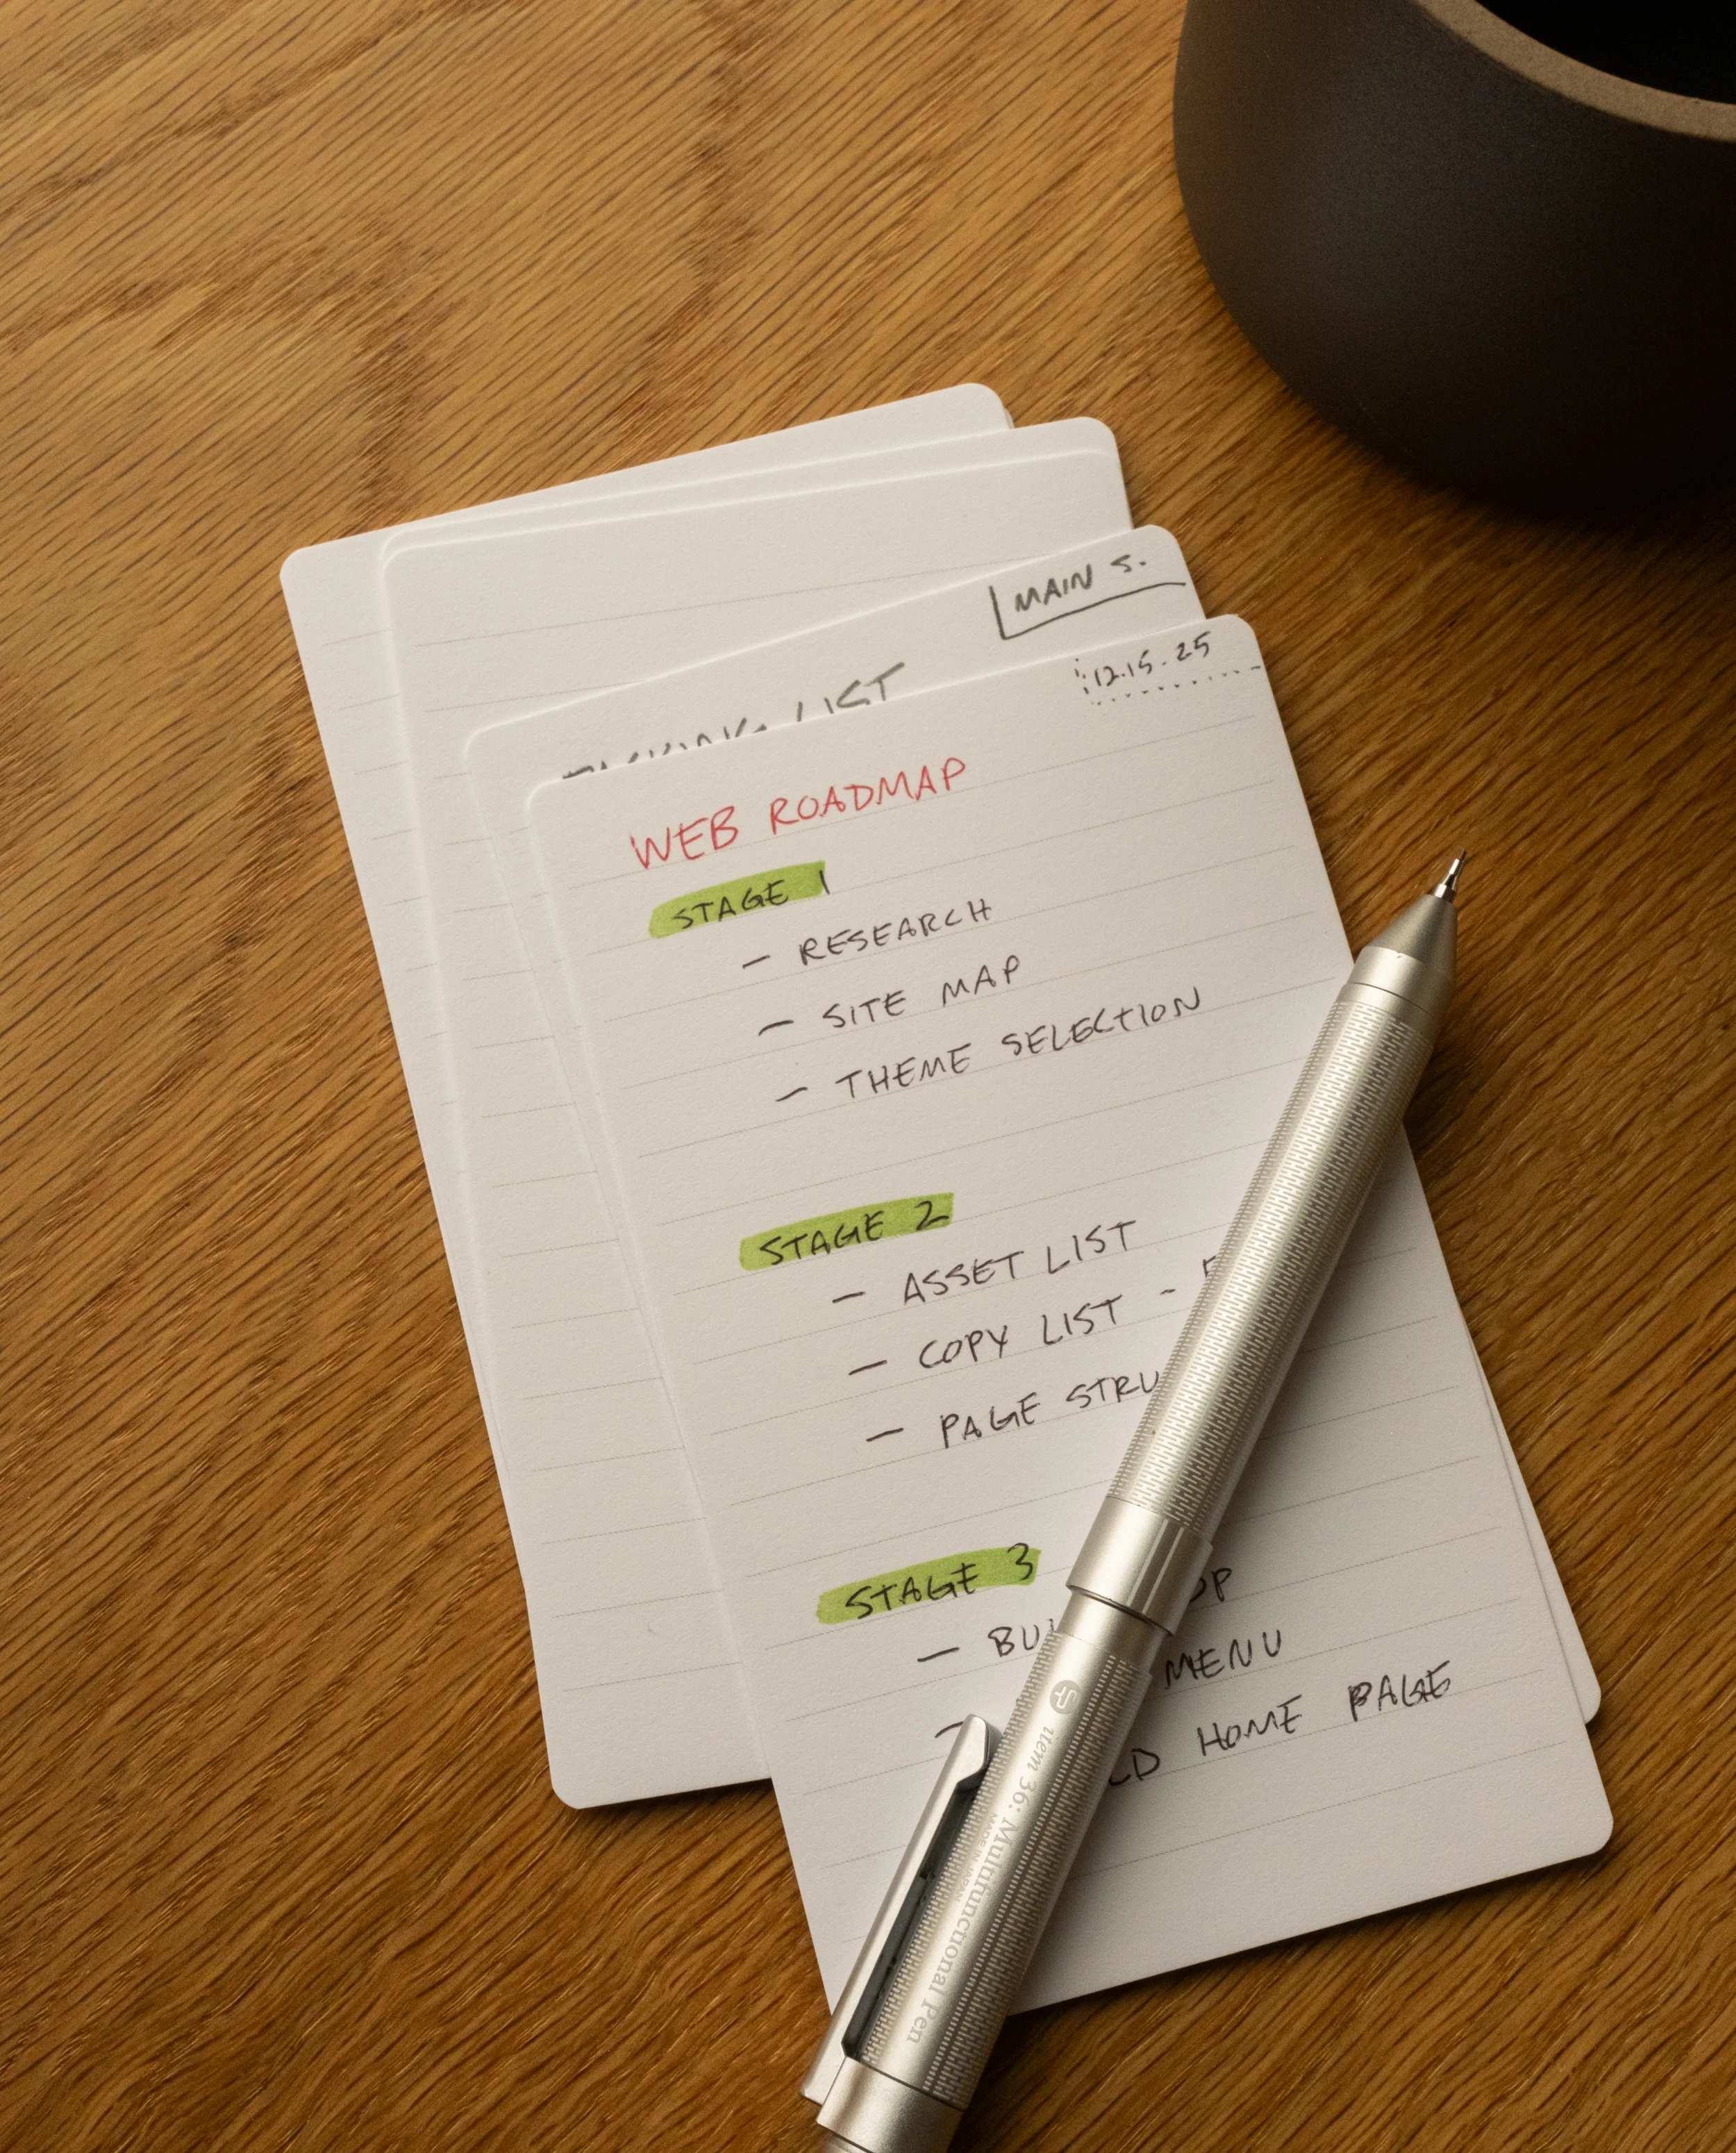 MAIN S.
LIST
12.15.25
WEB ROADMAP
STAGE 1
- RESEARCH
- SITE MAP
- THEME SELECTION
STAGE 2
- ASSET LIST
- COPY LIST -
- PAGE STRU
STAGE 3
- BU
MENU
- LD HOME PAGE
Item 36: Multifunctional Pen
MADE IN JAPAN